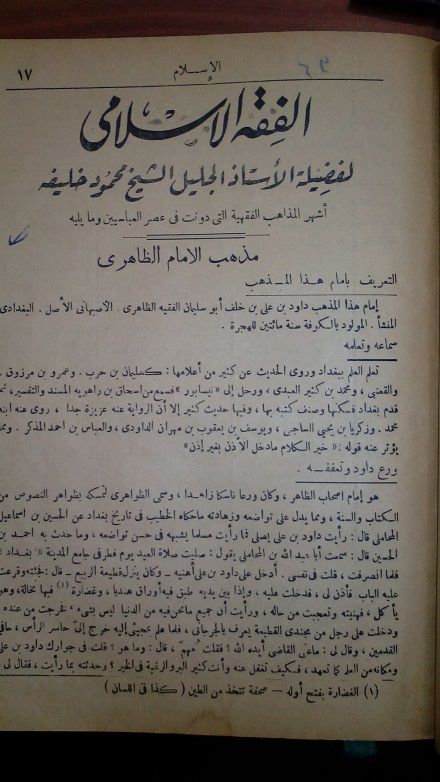 ١٧
الإسلام
الفقه الاسلامى
لفضيلة الأستاذ الجليل الشيخ محمود خليفه
أشهر المذاهب الفقهية التى دونت فى عصر العباسيين وما يليه
مذهب الامام الظاهرى
التعريف بامام هذا المذهب
إمام هذا المذهب داود بن على بن خلف أبو سليمان الفقيه الظاهرى . الأصبهانى الأصل . البغدادى
المنشأ . المولود بالكوفة سنة مائتين للهجرة .
سماعه وتعلمه
تعلم العلم ببغداد وروى الحديث عن كثير من أعلامها : كسليمان بن حرب . وعمرو بن مرزوق .
والقعنبى ، ومحمد بن كثير العبدى ، ورحل إلى « نيسابور » فسمع من اسحاق بن راهويه المسند والتفسير، ثم
قدم بغداد فسكنها وصنف كتبه بها ، وفيها حديث كثير إلا أن الرواية عنه عزيزة جدا ، روى عنه ابنه
محمد . وزكريا بن يحيى الساجى ، ويوسف بن يعقوب بن مهران الداودى ، والعباس بن احمد المذكر . ومما
يؤثر عنه قوله : « خير الكلام مادخل الأذن بغير إذن »
ورع داود وتعففه .
هو إمام اصحاب الظاهر ، وكان ورعا ناسكا زاهدا ، وسمى الظواهرى لتمسكه بظواهر النصوص من
الكتاب والسنة ، ومما يدل على تواضعه وزهادته ماحكاه الخطيب فى تاريخ بغداد عن الحسين بن اسماعيل
المحاملى قال : رأيت داود بن على يصلى فما رأيت مسلما يشبهه فى حسن تواضعه ، وما حدث به احمد بن
الحسين قال : سمعت أبا عبد الله بن المحاملى يقول : صليت صلاة العيد يوم فطر فى جامع المدينة « بغداد »
فلما انصرفت ، قلت فى نفسى . أدخل على داود بن على أهنيه ـ وكان ينزل قطيعة الربيع ـ قال : فجئته وقرعت
عليه الباب فأذن لى ، فدخلت عليه ، وإذا بين يديه طبق فيه أوراق هندبا ، وغضارة (١) فيها نخالة، وهو
يأكل ، فهنيته وتعجبت من حاله ، ورأيت أن جميع مانحن فيه من الدنيا ليس بشىء ، فخرجت من عنده
ودخلت على رجل من القطيعة يعرف بالجرجانى ، فلما علم بمجيئى إليه خرج إلى حاسر الرأس ، حافى
القدمين ، وقال لى : ماعنى القاضى أيده الله ؟ فقلت « مهم » ، قال : وما هو ؟ قلت فى جوارك داود بن على
ومكانه من العلم كما تعهد ، فكيف تغفل عنه وأنت كثير البر والرغبة فى الخير ؟ وحدثته بما رأيت ، فقال لى
(١) الغضارة بفتح أوله ـ صحفة تتخذ من الطين ( كذا فى اللسان )